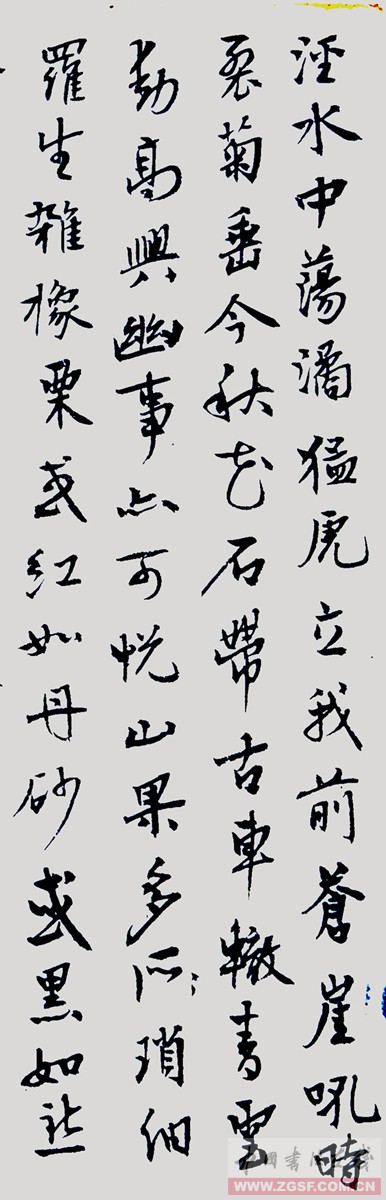 涇水中蕩潏猛虎立我前蒼崖吼時
裂菊垂今秋花石帶古車轍青雲
動高興幽事亦可悦山果多所瑣細
羅生雜橡栗或紅如丹砂或黑如點
WWW.ZGSF.COM.CN